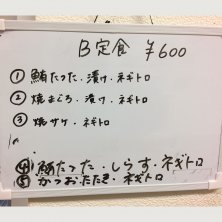 B定食 ¥600
① 鮪たつた・漬け・ネギトロ
② 焼まぐろ・漬け・ネギトロ
③ 焼サケ・ネギトロ
④ 鯛たつた・しらす・ネギトロ
⑤ かつおたたき・ネギトロ